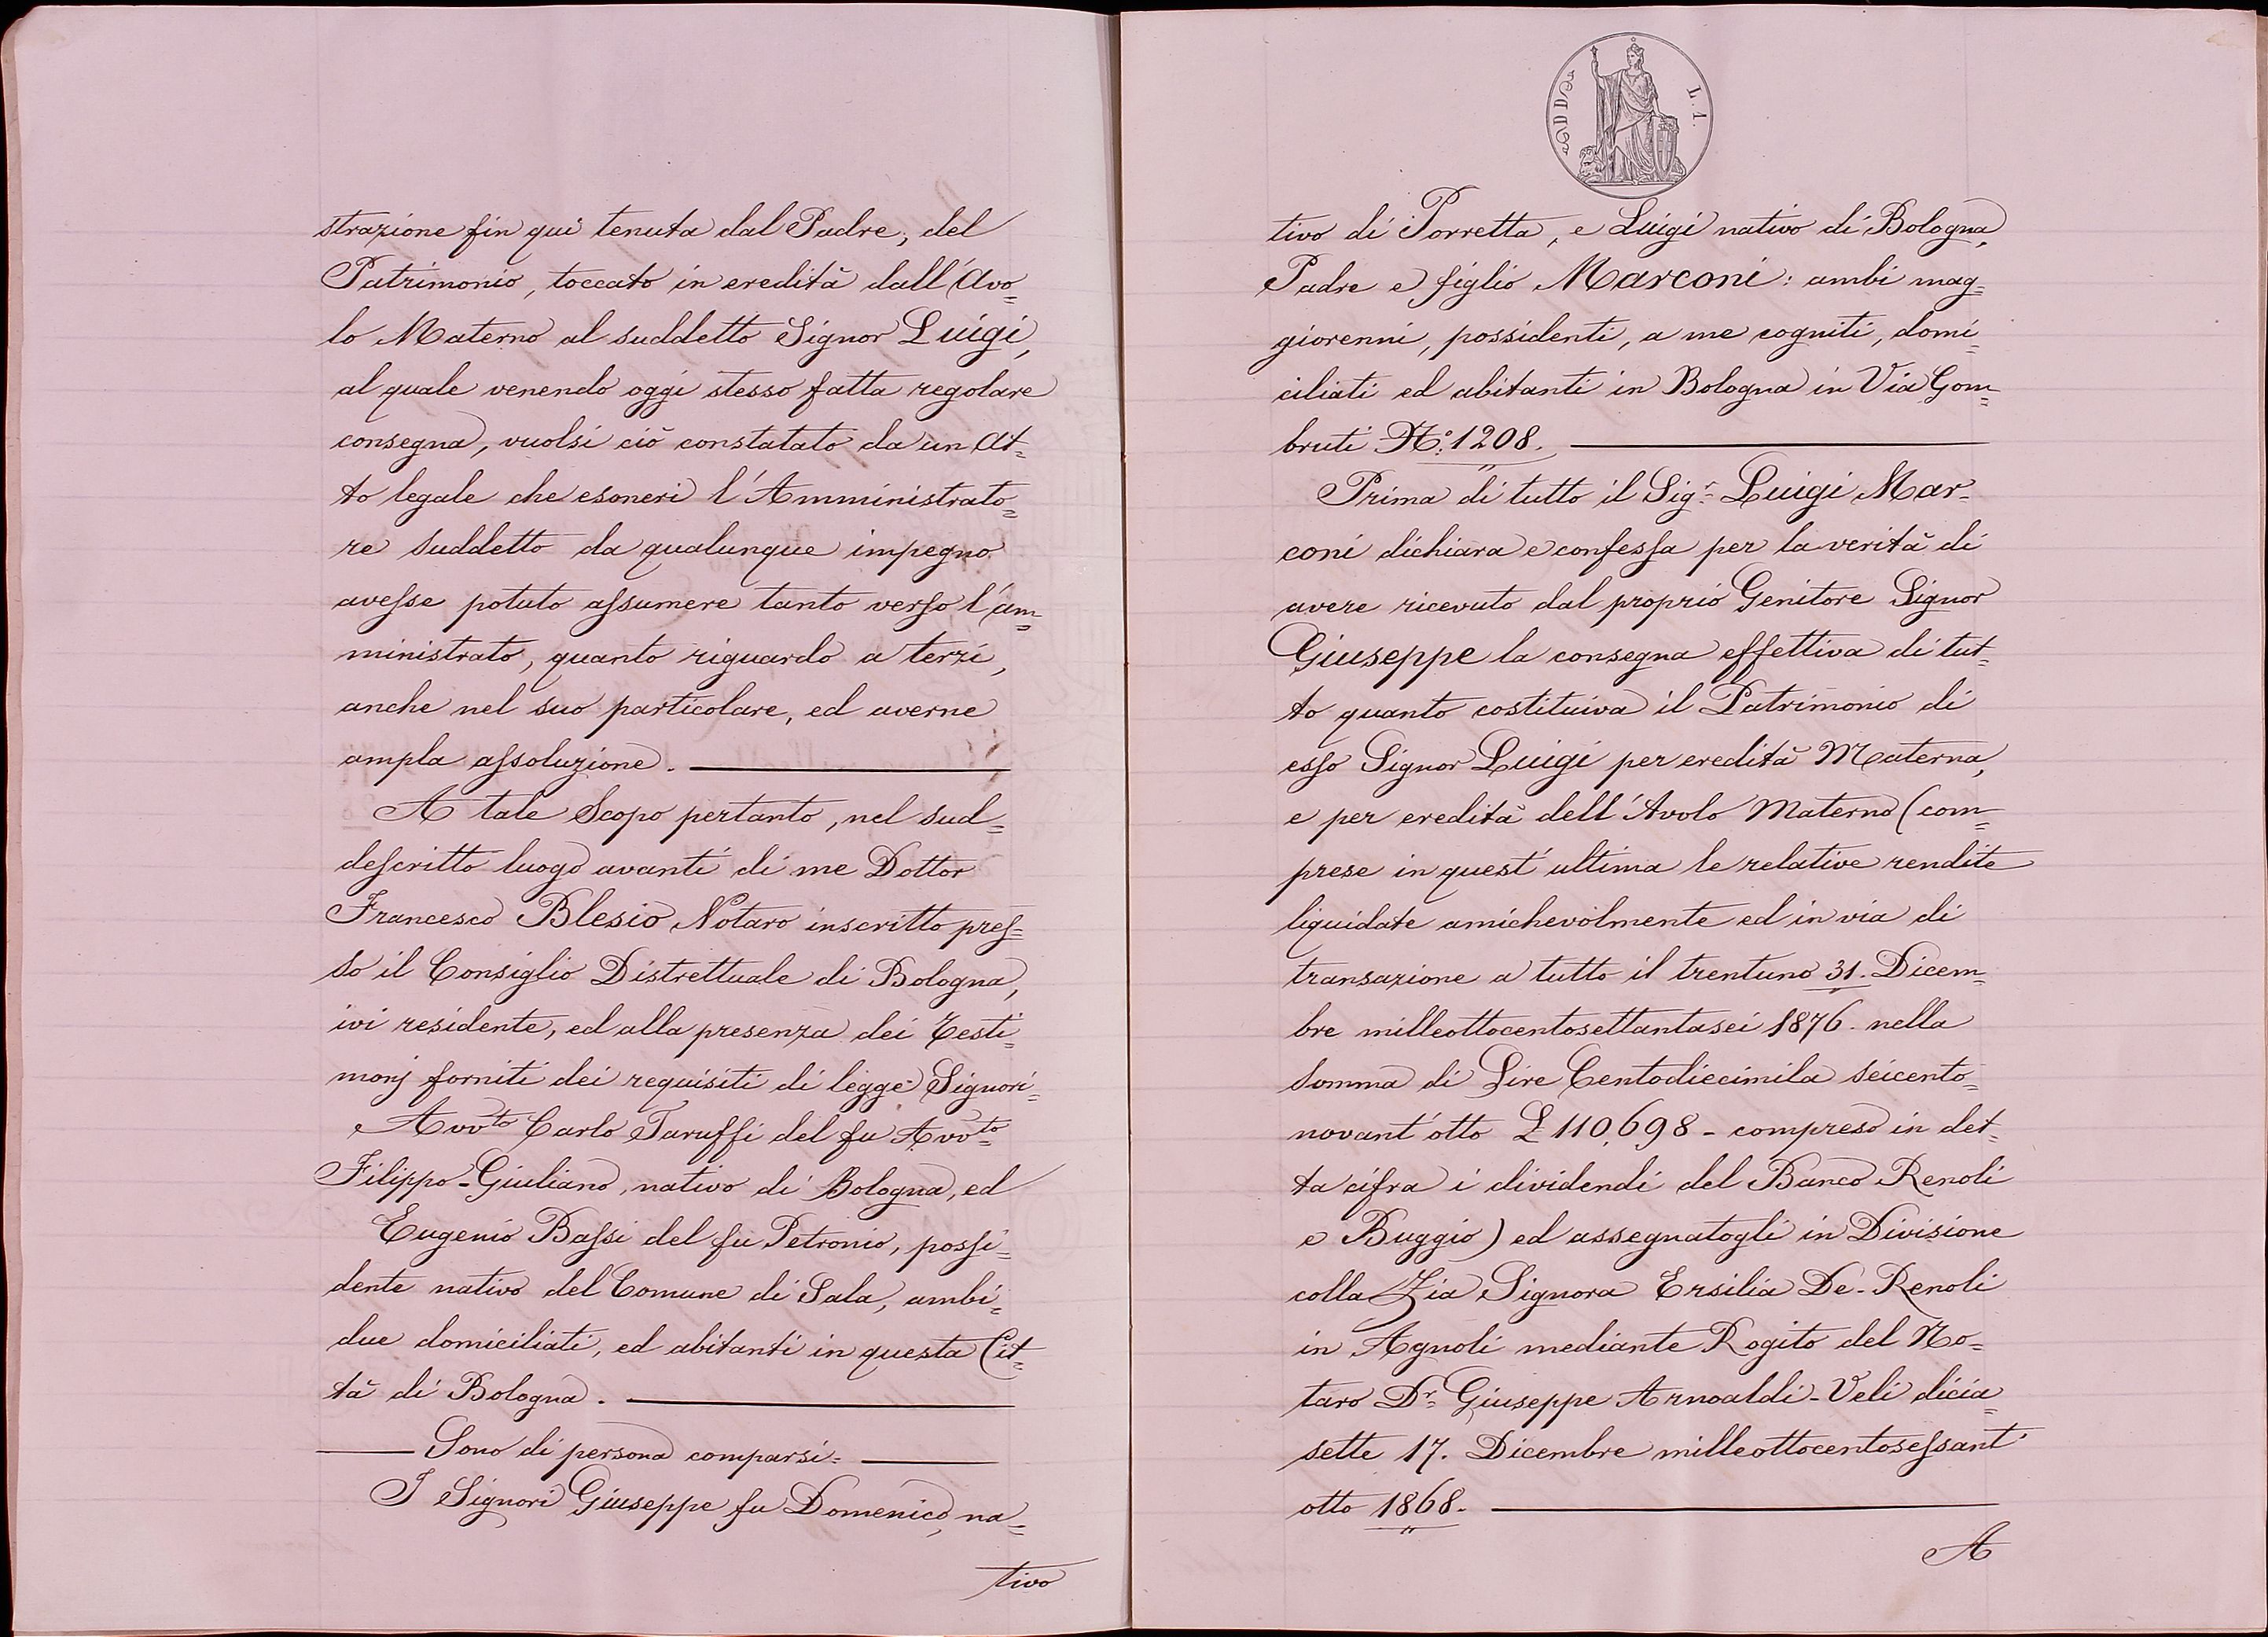 strazione fin qui tenuta dal Padre, del
Patrimonio, toccato in eredità dall'Avo=
lo Materno al suddetto Signor Luigi,
al quale venendo oggi stesso fatta regolare
consegna, vuolsi ciò constatato da un At=
to legale che esoneri l'Amministrato=
re suddetto da qualunque impegno
avesse potuto assumere tanto verso l'am=
ministrato, quanto riguardo a terzi,
anche nel suo particolare, ed averne
ampla assoluzione.
A tale Scopo pertanto, nel sud=
descritto luogo avanti di me Dottor
Francesco Blesio Notaro inscritto pres=
so il Consiglio Distrettuale di Bologna,
ivi residente, ed alla presenza dei Testi=
monj forniti dei requisiti di legge Signori=
Avv.to Carlo Taruffi del fu Avv.to
Filippo-Giuliano, nativo di Bologna, ed
Eugenio Bassi del fu Petronio, possi=
dente nativo del Comune di Sala, ambi=
due domiciliati, ed abitanti in questa Cit=
tà di Bologna.
Sono di persona comparsi=
I Signori Giuseppe fu Domenico, na=
tivo
L. 1.
tivo di Porretta, e Luigi nativo di Bologna,
Padre e figlio Marconi: ambi mag=
giorenni, possidenti, a me cogniti, domi=
ciliati ed abitanti in Bologna in Via Gom=
bruti N.° 1208.
Prima di tutto il Sig.r Luigi Mar=
coni dichiara e confessa per la verità di
avere ricevuto dal proprio Genitore Signor
Giuseppe la consegna effettiva di tut=
to quanto costituiva il Patrimonio di
esso Signor Luigi per eredità Materna,
e per eredità dell'Avolo Materno (com=
prese in quest'ultima le relative rendite
liquidate amichevolmente ed in via di
transazione a tutto il trentuno 31. Dicem=
bre milleottocentosettantasei 1876. nella
somma di Lire Centodiecimila seicento=
novant'otto L 110,698 - compreso in det=
ta cifra i dividendi del Banco Renoli
e Buggio) ed assegnatogli in Divisione
colla Zia Signora Ersilia De-Renoli
in Agnoli mediante Rogito del No=
taro D.r Giuseppe Arnoaldi-Veli dicia=
sette 17. Dicembre milleottocentosessant'
otto 1868.
A